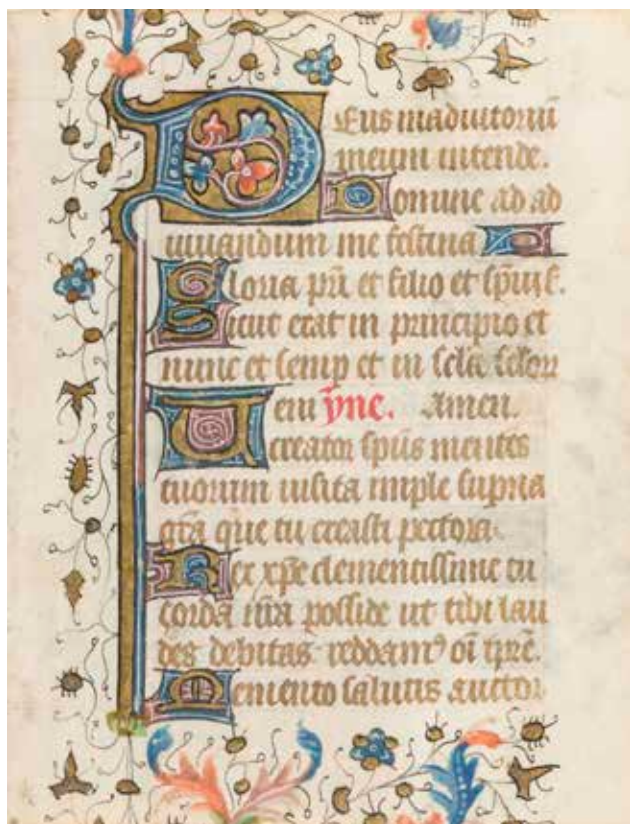 Deus in adiutoriu
meum intende.
Domine ad ad
iuuandum me festina
Gloria pri et filio et spui s.
Sicut erat in principio et
nunc et semp et in scla sclor
Ueni yne. Amen.
creator spus mentes
tuorum uisita imple supna
gra que tu creasti pectora
Rex xpe clementissime tu
corda nra posside ut tibi lau
des debitas reddam⁹ oi tpre.
Memento salutis auctor